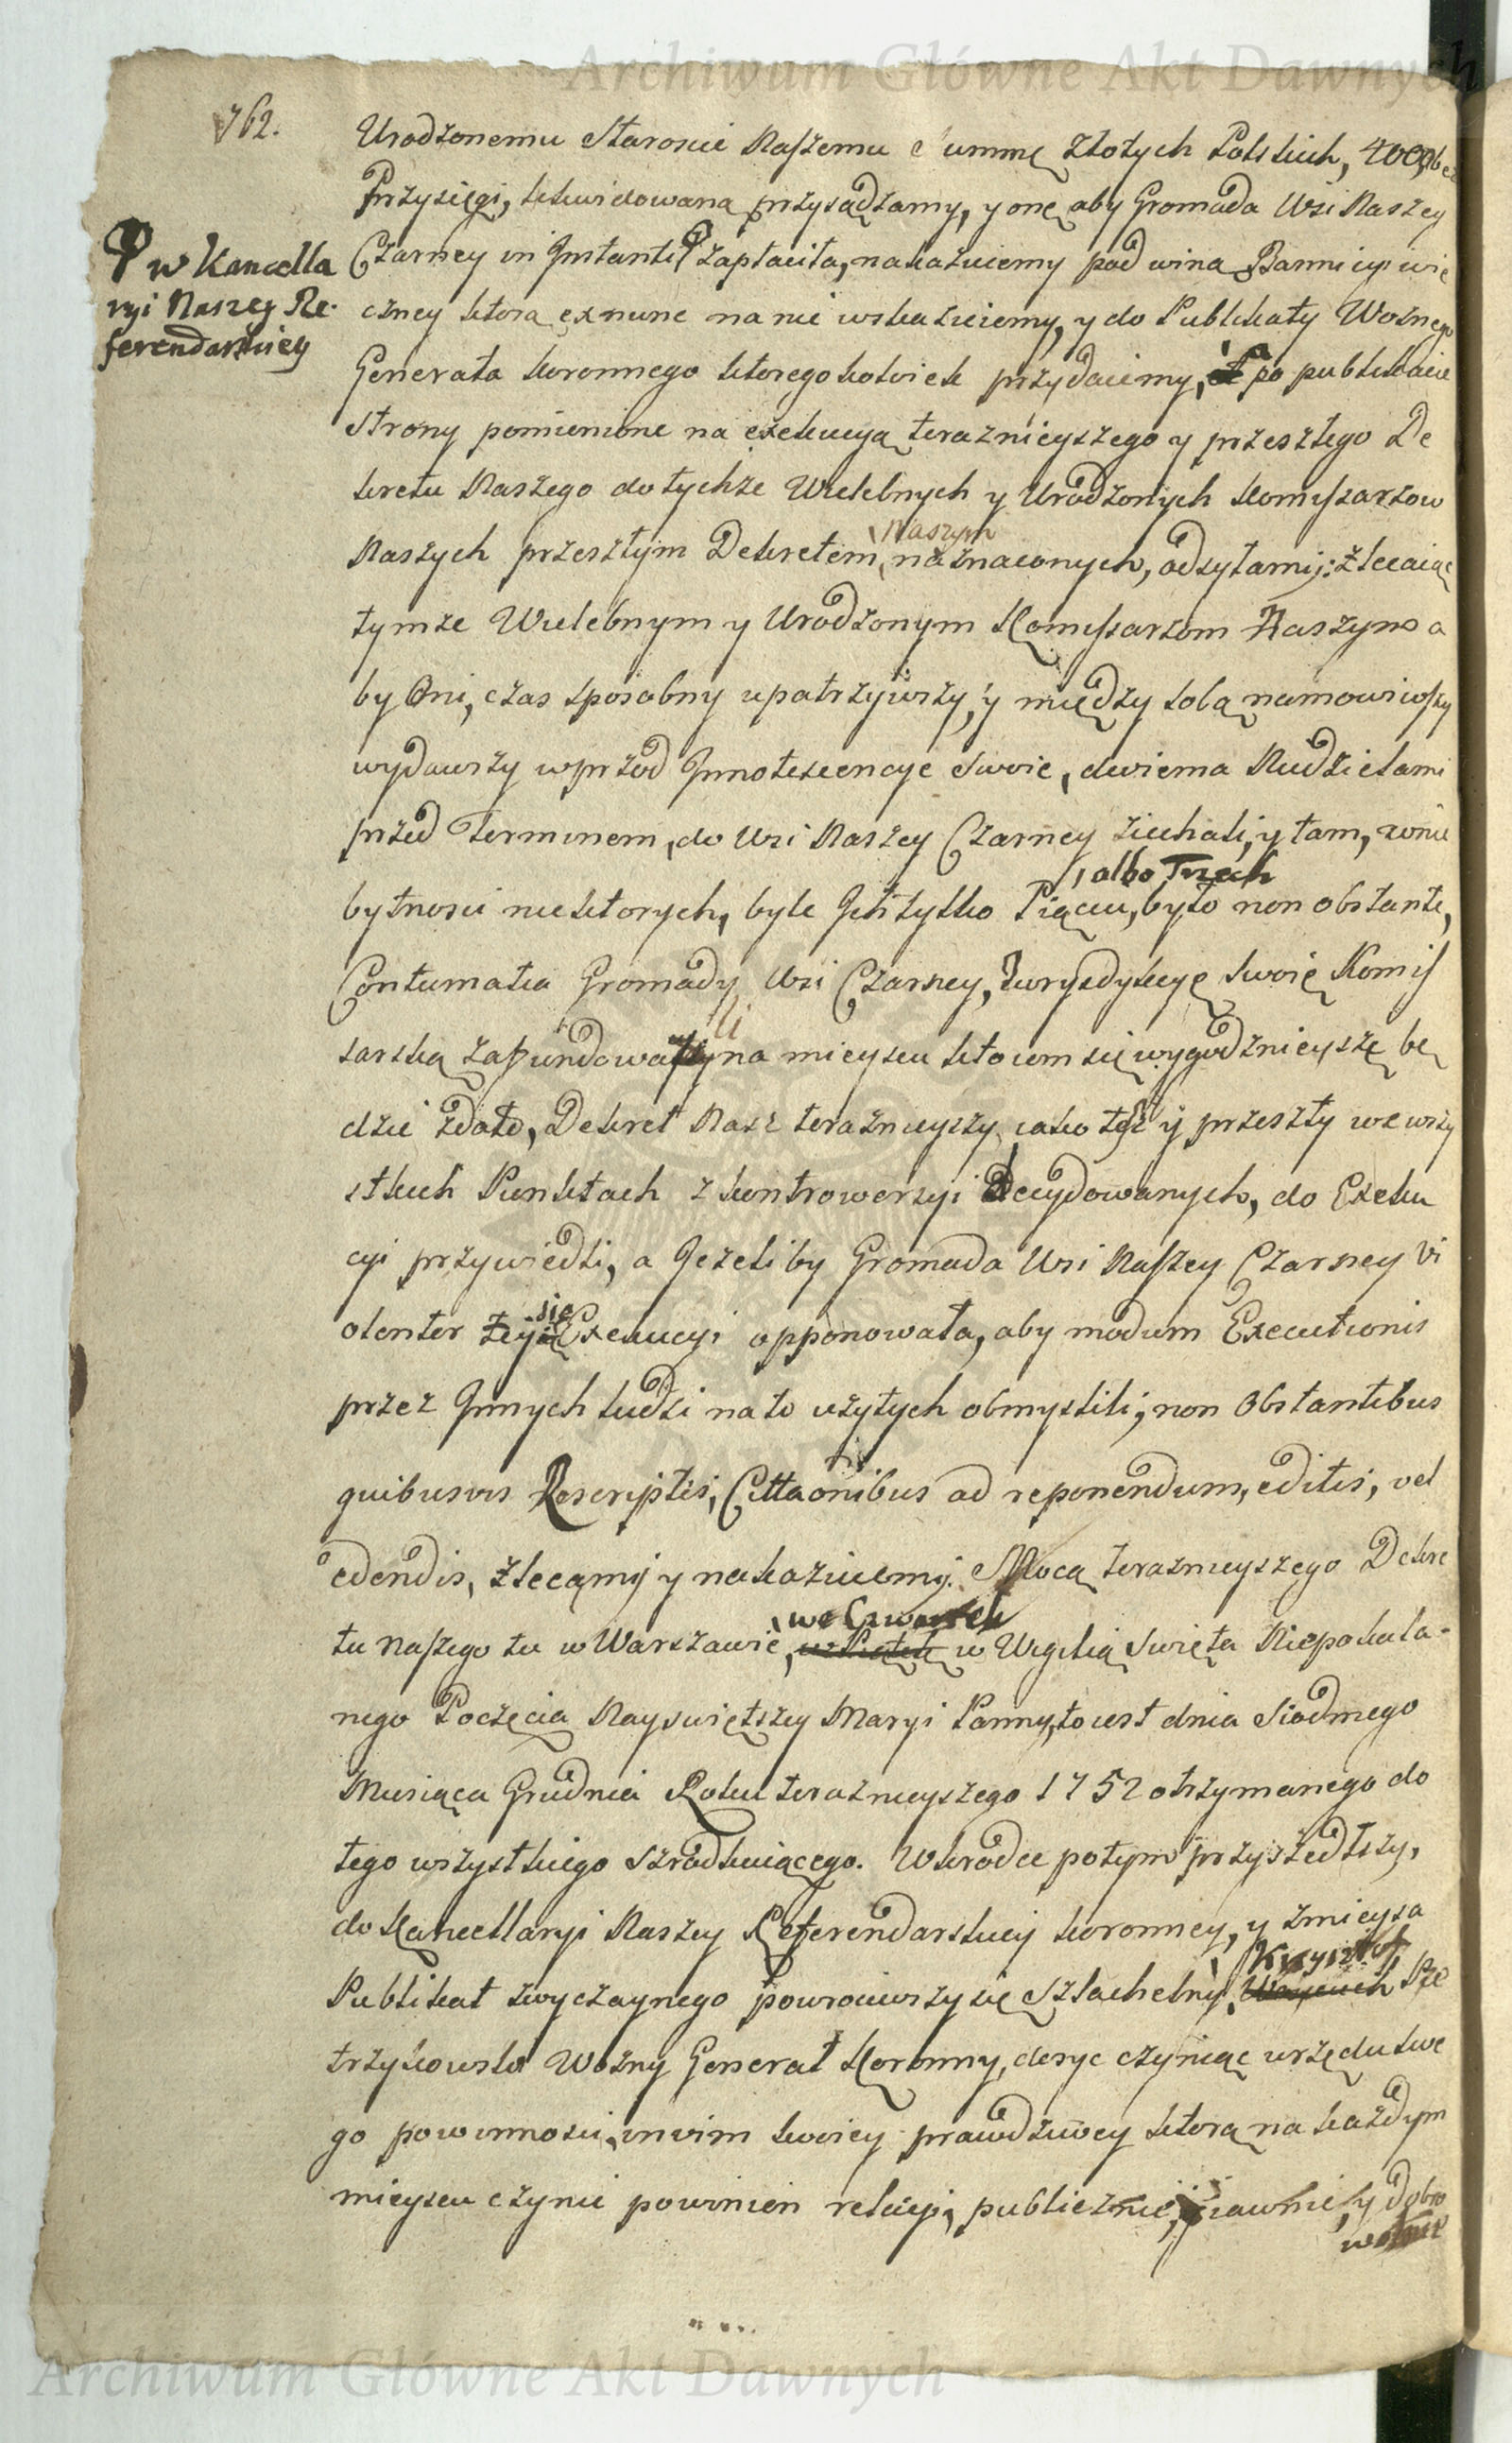 Archiwum Główne Akt Dawnych
762.
Urodzonemu Staroscie Naszemu Summę złotych Polskich, 4000, bez
Przysięgi, likwidowaną przysądzamy, y onę aby Gromada Wsi Naszey
Czarney in Instanti zapłaciła, nakazuiemy pod winą Bannicyi wie
w Kancella
ryi Naszey Re-
ferendarskiey
czney którą ex nunc na nię wskazuiemy, y do Publikaty Woznego
Generała koronnego ktoregokolwiek przydaiemy, po publikacie
strony pomienione na exekucyą teraznieyszego y przeszłego De
kretu Naszego do tychże Wielebnych y Urodzonych Kommissarzow
Naszych przeszłym Dekretem Naszym naznaczonych, odsyłamy; zlecaiąc
tymże Wielebnym y Urodzonym Kommissarzom Naszym a
by Oni, czas sposobny upatrzywszy, y między sobą namowiwszy
wydawszy wprzod Innotescencye swoie, dwiema Niedzielami
przed Terminem, do Wsi Naszey Czarney ziechali, y tam, w nie
bytnosci niektorych, byle Ich tylko Pięciu, albo Trzech było non obstante,
Contumatia Gromady Wsi Czarney, Jurysdykcyę swoię Komis
sarską zafundowali na mieyscu ktorem się wygodnieysze bę
dzie zdało, Dekret Nasz teraznieyszy iako też y przeszły we wszy
stkich Punktach z kontrowersyi decydowanych, do Exeku
cyi przywiedli, a Jeżeliby Gromada Wsi Naszey Czarney Vi
olenter teyże się Exekucyi opponowała, aby modum Executionis
przez Innych ludzi na to użytych obmyslili, non Obstantibus
quibusvis Rescriptis, Cittaonibus ad reponendum, editis, vel
edendis, zlecamy y nakazuiemy. Mocą teraznieyszego Dekre
tu naszego tu w Warszawie, we Czwartek w Wigilią Swięta Niepokala-
nego Poczęcia Nayswiętszey Maryi Panny, to iest dnia Siodmego
Miesiąca Grudnia Roku teraznieyszego 1752 otrzymanego do
tego wszystkiego szrodkuiącego. Wkrodce potym przyszedłszy,
do Kancellaryi Naszey Referendarskiey koronney, y z mieysca
Publikat zwyczaynego powrociwszy się Szlachetny Krysztof Pie
trzykowski Wozny Generał Koronny, dosyc czyniąc urzędu swe
go powinnosci, in vim swoiey prawdziwey którą na każdym
mieyscu czynic powinien relacyi, publicznie, iawnie, y dobro
wolnie
Archiwum Główne Akt Dawnych